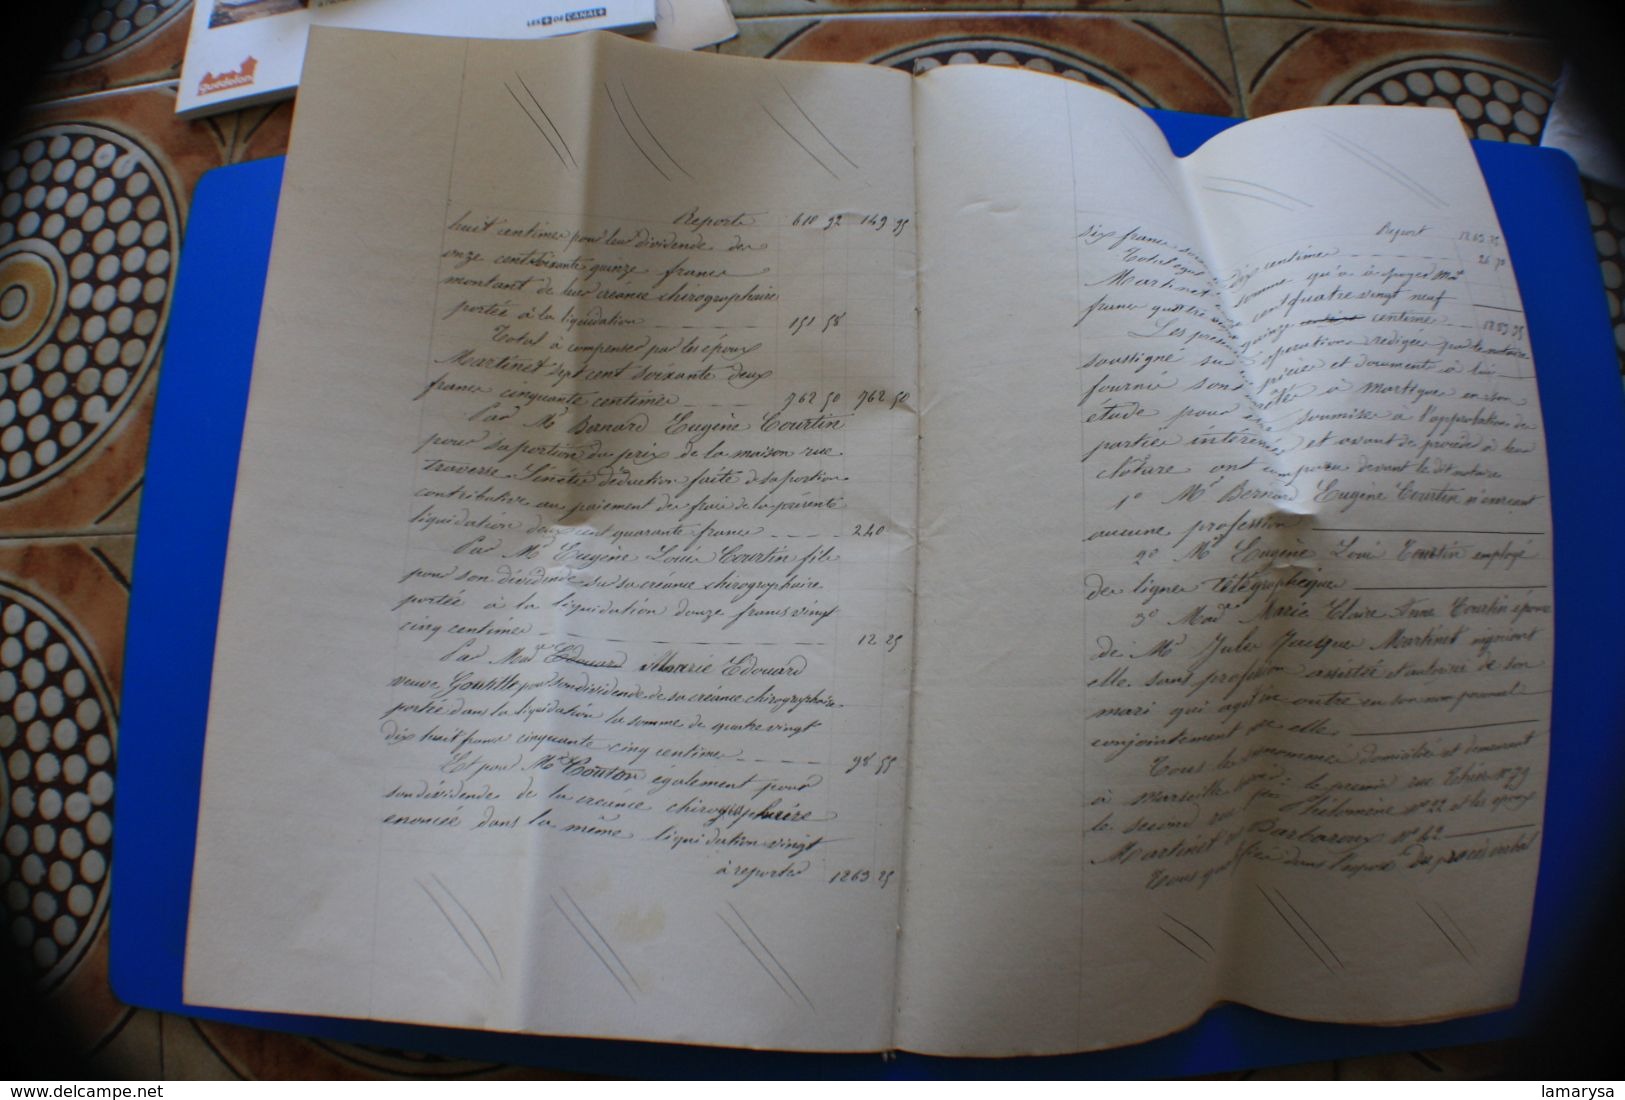 LES + DE CANAL+
guédelon
Reporte 610 92 149 95
huit centimes pour leur dividende de
onze cent soixante quinze francs
montant de leur créance chirographaire
portée à la liquidation 151 58
Total à compenser par les époux
Martinet sept cent soixante deux
francs cinquante centimes 762 50 762 50
Par Mr Bernard Eugène Courtin
pour sa portion du prix de la maison rue
traverse déduction faite de sa portion
contributive au paiement des frais de la présente
liquidation deux cent quarante francs 240
Par Mr Eugène Louis Courtin fils
pour son dividende sur sa créance chirographaire
portée à la liquidation douze francs vingt
cinq centimes 12 25
Par Made Edouard Marie Edouard
veuve pour son dividende de sa créance chirographaire
portée dans la liquidation la somme de quatre vingt
dix huit francs cinquante cinq centimes 98 55
Et par Mr également pour
son dividende de la créance chirographaire
énoncée dans la même liquidation vingt
à reporter 1263 25
Report 1263 25
six francs dix centimes 26 70
Total somme qu'a à payer Mr
Martinet cent quatre vingt neuf
francs quatre vingt quinze centimes 1289 95
Les présentes opérations rédigées par le notaire
soussigné sur pièces et documents à lui
fournis sont à Martigues en son
étude pour être soumises à l'approbation des
parties intéressées et avant de procéder à leur
clôture ont comparu devant le dit notaire
1º Mr Bernard Eugène Courtin n'exerçant
aucune profession
2º Mr Eugène Louis Courtin employé
des lignes télégraphiques
3º Made Marie Claire Anne Courtin épouse
de Mr Jules Jacques Martinet négociant
elle sans profession assistée et autorisée de son
mari qui agit en outre en son nom personnel
conjointement avec elle
Tous les susnommés domiciliés et demeurant
à Marseille savoir: le premier rue Thiers nº 79
le second rue Philomène nº 22 et les époux
Martinet rue Barbaroux nº 42
Tous dans l'exposé du procès verbal
lamarysa